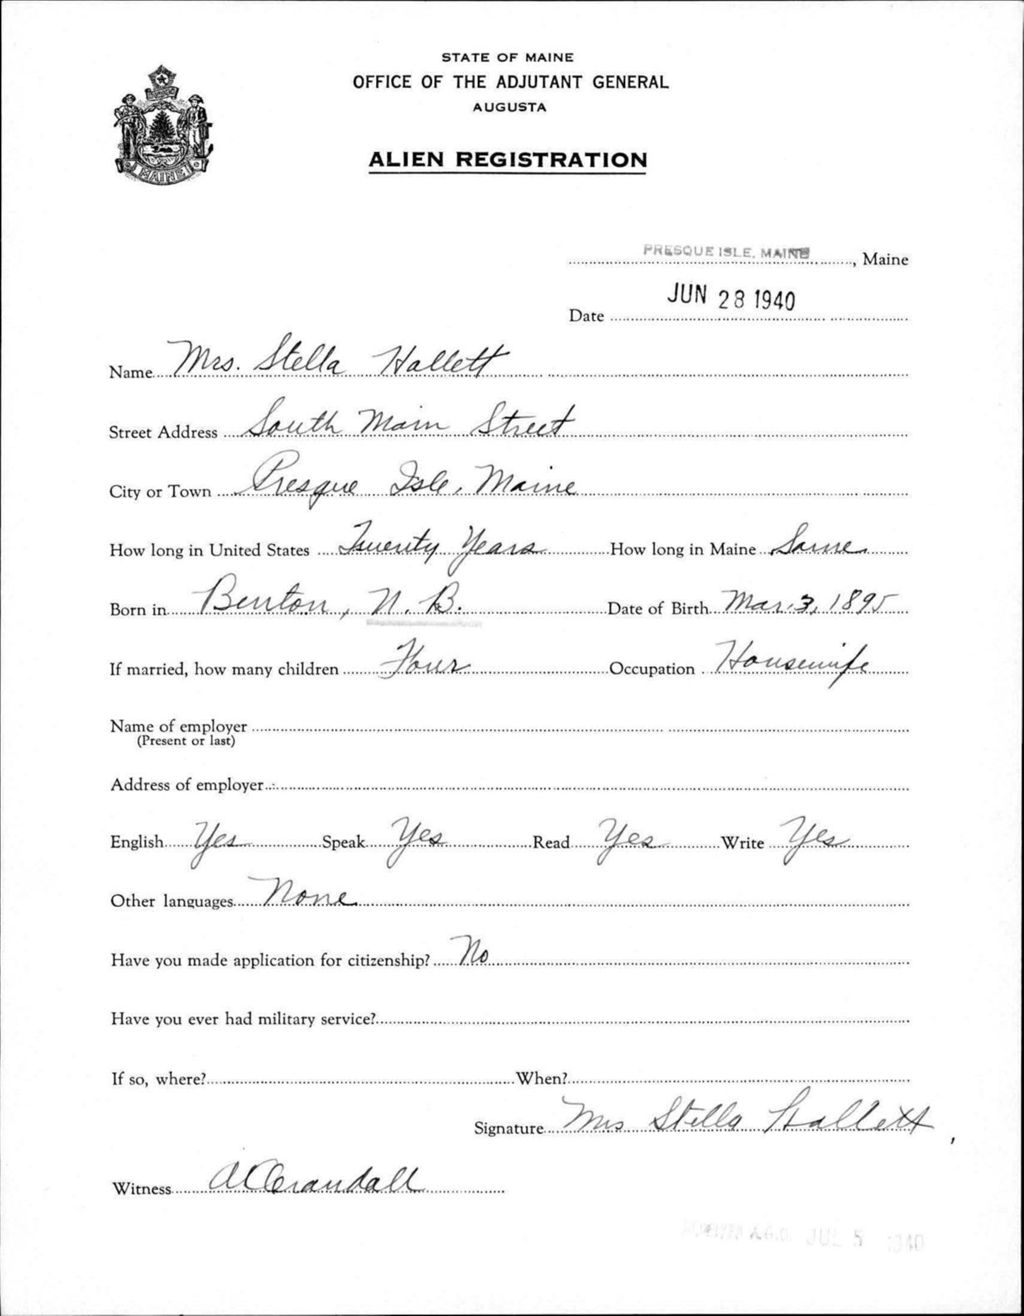 STATE OF MAINE
OFFICE OF THE ADJUTANT GENERAL
AUGUSTA
ALIEN REGISTRATION
MAINE
PRESQUE ISLE, MAINE, Maine
Date JUN 28 1940
Name Mrs. Stella Hallett
Street Address South Main Street
City or Town Presque Isle, Maine
How long in United States Twenty Years How long in Maine Same
Born in Benton, N. B. Date of Birth Mar. 3, 1895
If married, how many children Four Occupation Housewife
Name of employer
(Present or last)
Address of employer
English Yes Speak Yes Read Yes Write Yes
Other languages None
Have you made application for citizenship? No
Have you ever had military service?
If so, where? When?
Signature Mrs Stella Hallett
Witness A C Crandall
A.G.O. JUL 5 1940